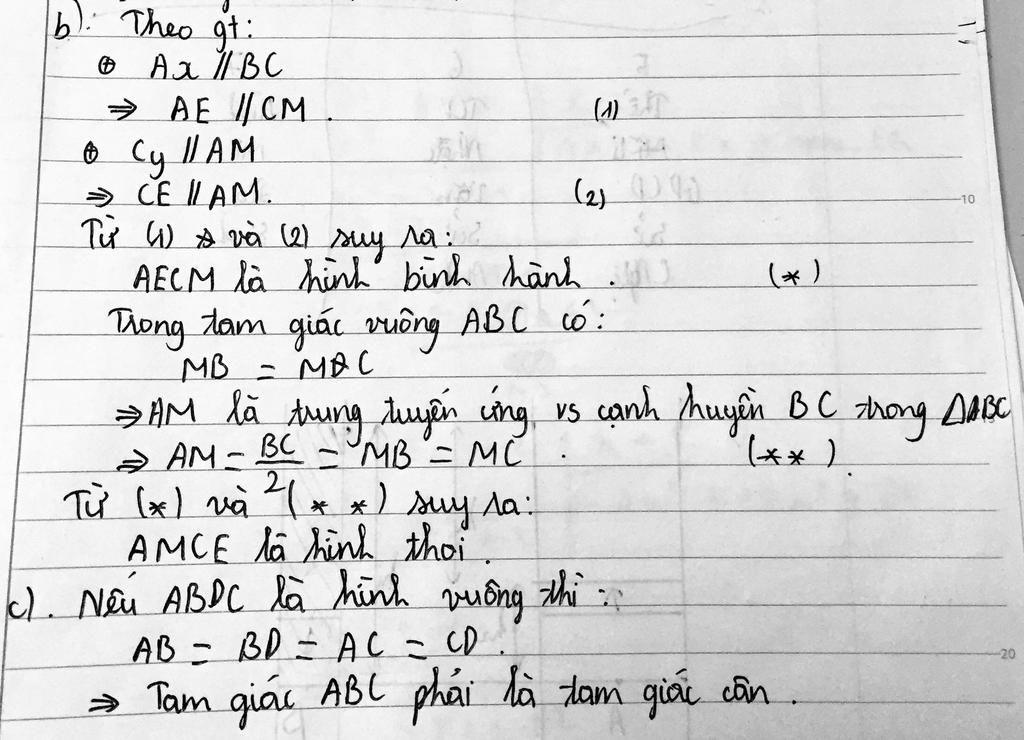 b). Theo gt:
⊕ Ax // BC
⇒ AE // CM. (1)
⊕ Cy // AM
⇒ CE // AM. (2)
10
Từ (1) và (2) suy ra:
AECM là hình bình hành. (*)
Trong tam giác vuông ABC có:
MB = MC
⇒ AM là trung tuyến ứng vs cạnh huyền BC trong ΔABC
⇒ AM = BC/2 = MB = MC. (**)
Từ (*) và (**) suy ra:
AMCE là hình thoi.
c). Nếu ABDC là hình vuông thì:
AB = BD = AC = CD.
20
⇒ Tam giác ABC phải là tam giác cân.